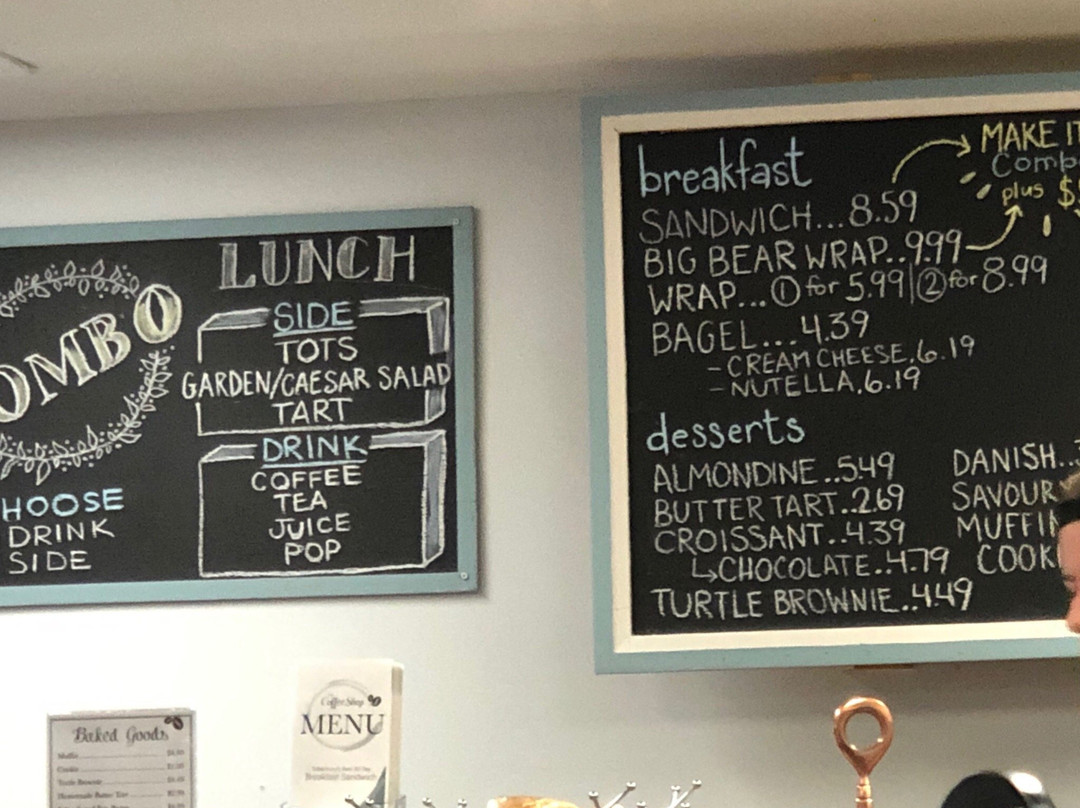 LUNCH
SIDE
TOTS
GARDEN/CAESAR SALAD
TART
DRINK
COFFEE
TEA
JUICE
POP
OMBO
HOOSE
DRINK
SIDE
breakfast
MAKE IT
Comb
plus $
SANDWICH...8.59
BIG BEAR WRAP..9.99
WRAP...① for 5.99|② for 8.99
BAGEL... 4.39
- CREAM CHEESE, 6.19
- NUTELLA, 6.19
desserts
ALMONDINE..5.49
BUTTER TART..2.69
CROISSANT..4.39
↳CHOCOLATE..4.79
TURTLE BROWNIE..4.49
DANISH..
SAVOUR
MUFFIN
COOK
Coffee Shop
MENU
Breakfast Sandwich
Baked Goods
Muffin
Cookie
Turtle Brownie
Homemade Butter Tart